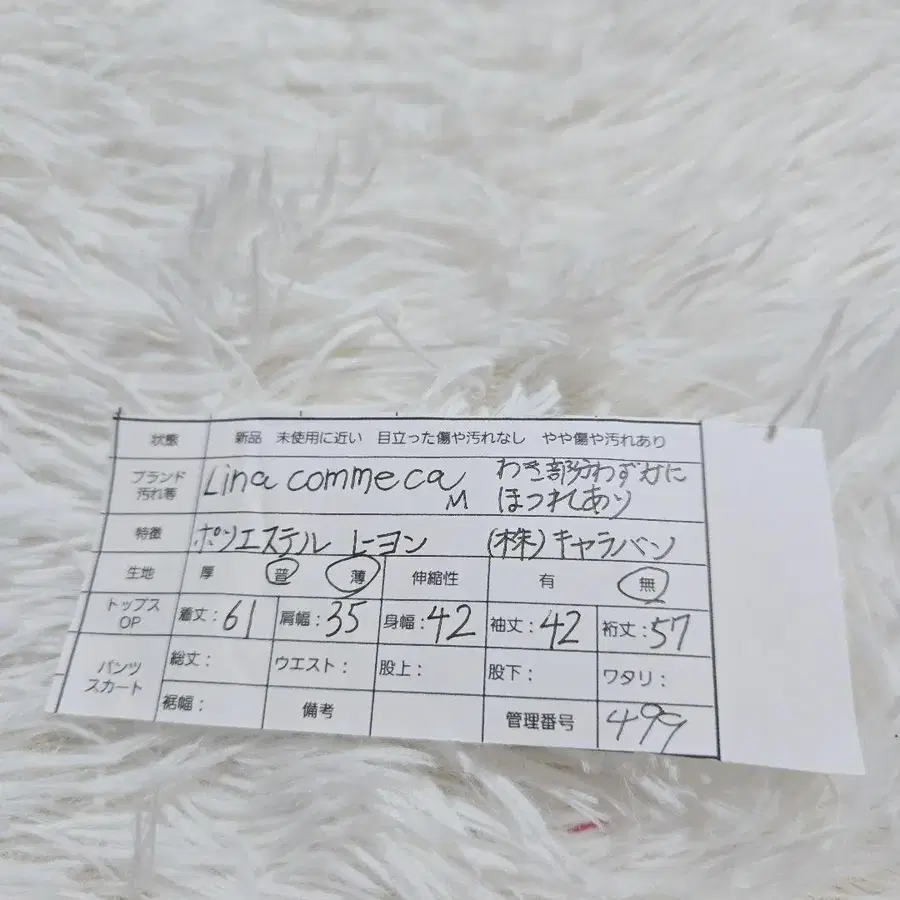 状態 新品 未使用に近い 目立った傷や汚れなし やや傷や汚れあり
ブランド 汚れ等 Lina commeca M わき部分わずかに ほつれあり
特徴 ポリエステル レーヨン (株)キャラバン
生地 厚 普 薄 伸縮性 有 無
トップス OP 着丈:61 肩幅:35 身幅:42 袖丈:42 裄丈:57
パンツ スカート 総丈: ウエスト: 股上: 股下: ワタリ:
裾幅: 備考 管理番号 499